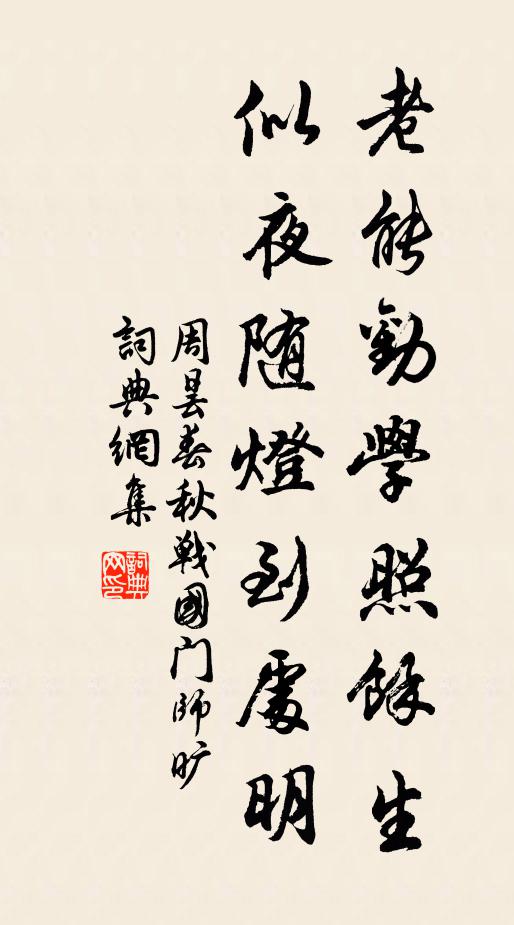 老能勸學照餘生
似夜随燈到處明
周曇春秋戰國門師旷
詞典網集
詞典网印